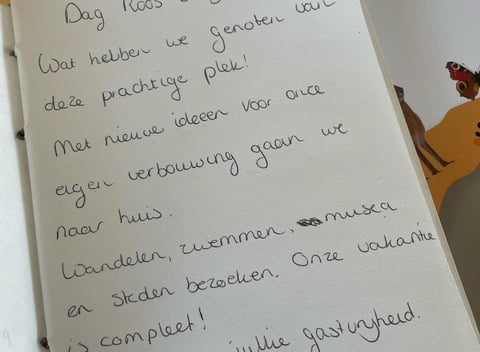 Dag Roos
Wat hebben we genoten van
deze prachtige plek!
Met nieuwe ideeen voor onze
eigen verbouwing gaan we
naar huis.
Wandelen, zwemmen, musea
en steden bezoeken. Onze vakantie
is compleet!
jullie gastvrijheid.